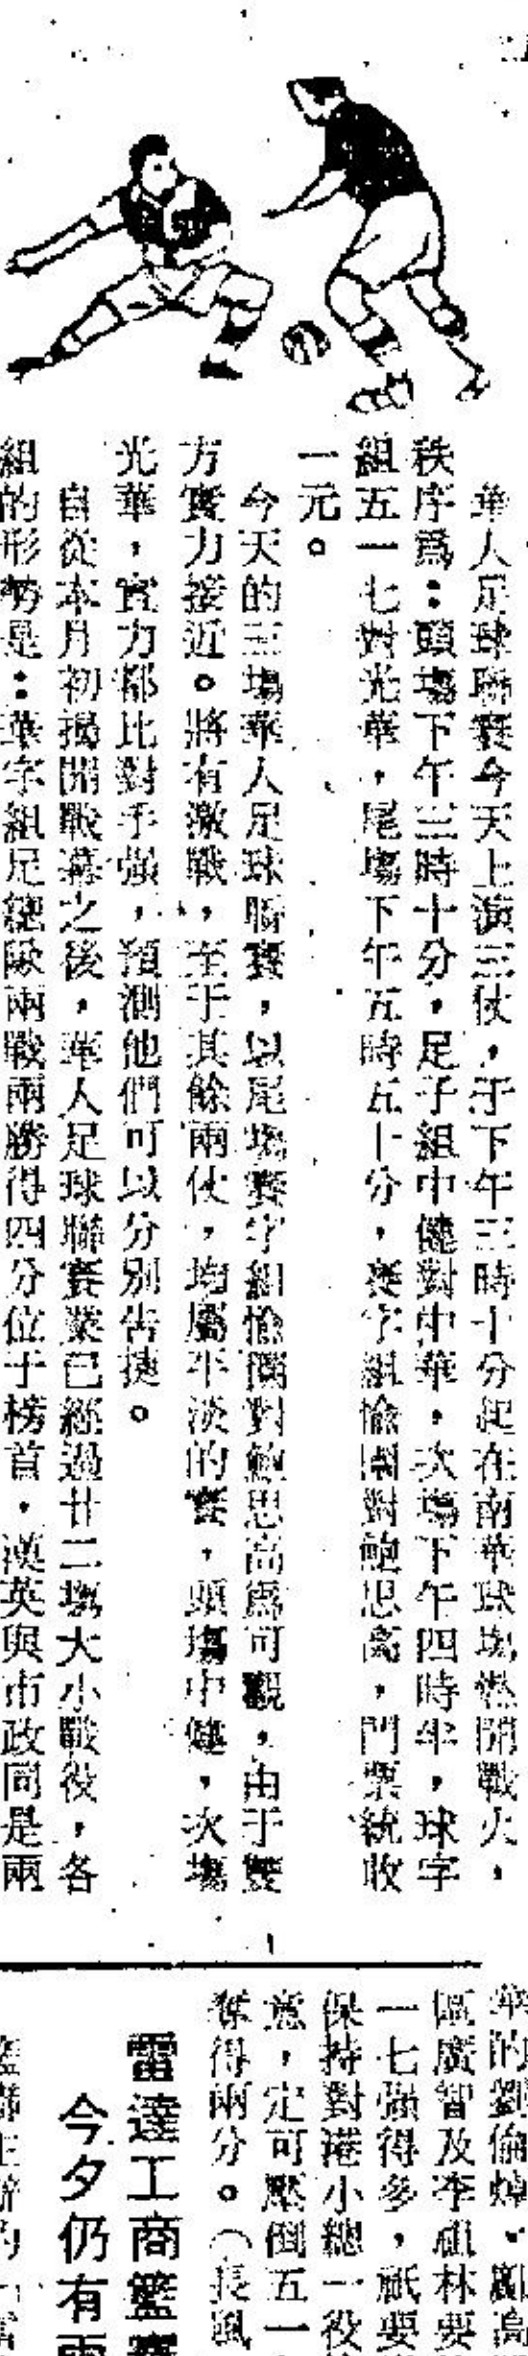 華人足球聯賽今天上演三仗，于下午三時十分起在南華球塲燃開戰火，
秩序爲：頭塲下午三時十分，足子組中健對中華，次塲下午四時半，球字
組五一七對光華，尾塲下午五時五十分，賽字組愉園對鮑思高，門票統收
一元。
今天的三塲華人足球聯賽，以尾塲賽字組愉園對鮑思高爲可觀，由于雙
方實力接近。將有激戰，至于其餘兩仗，均屬平淡的賽，頭塲中健，次塲
光華，實力都比對手强，預測他們可以分別告捷。
自從本月初揭開戰幕之後，華人足球聯賽業已經過廿二塲大小戰役，各
組的形勢是：華字組足總隊兩戰兩勝得四分位于榜首，漢英與市政同是兩
華的劉倫焯、
區廣智及李祖林要
一七强得多，祇要
保持對港小總一役
意，定可壓倒五一
奪得兩分。（長風
雷達工商籃賽
今夕仍有兩